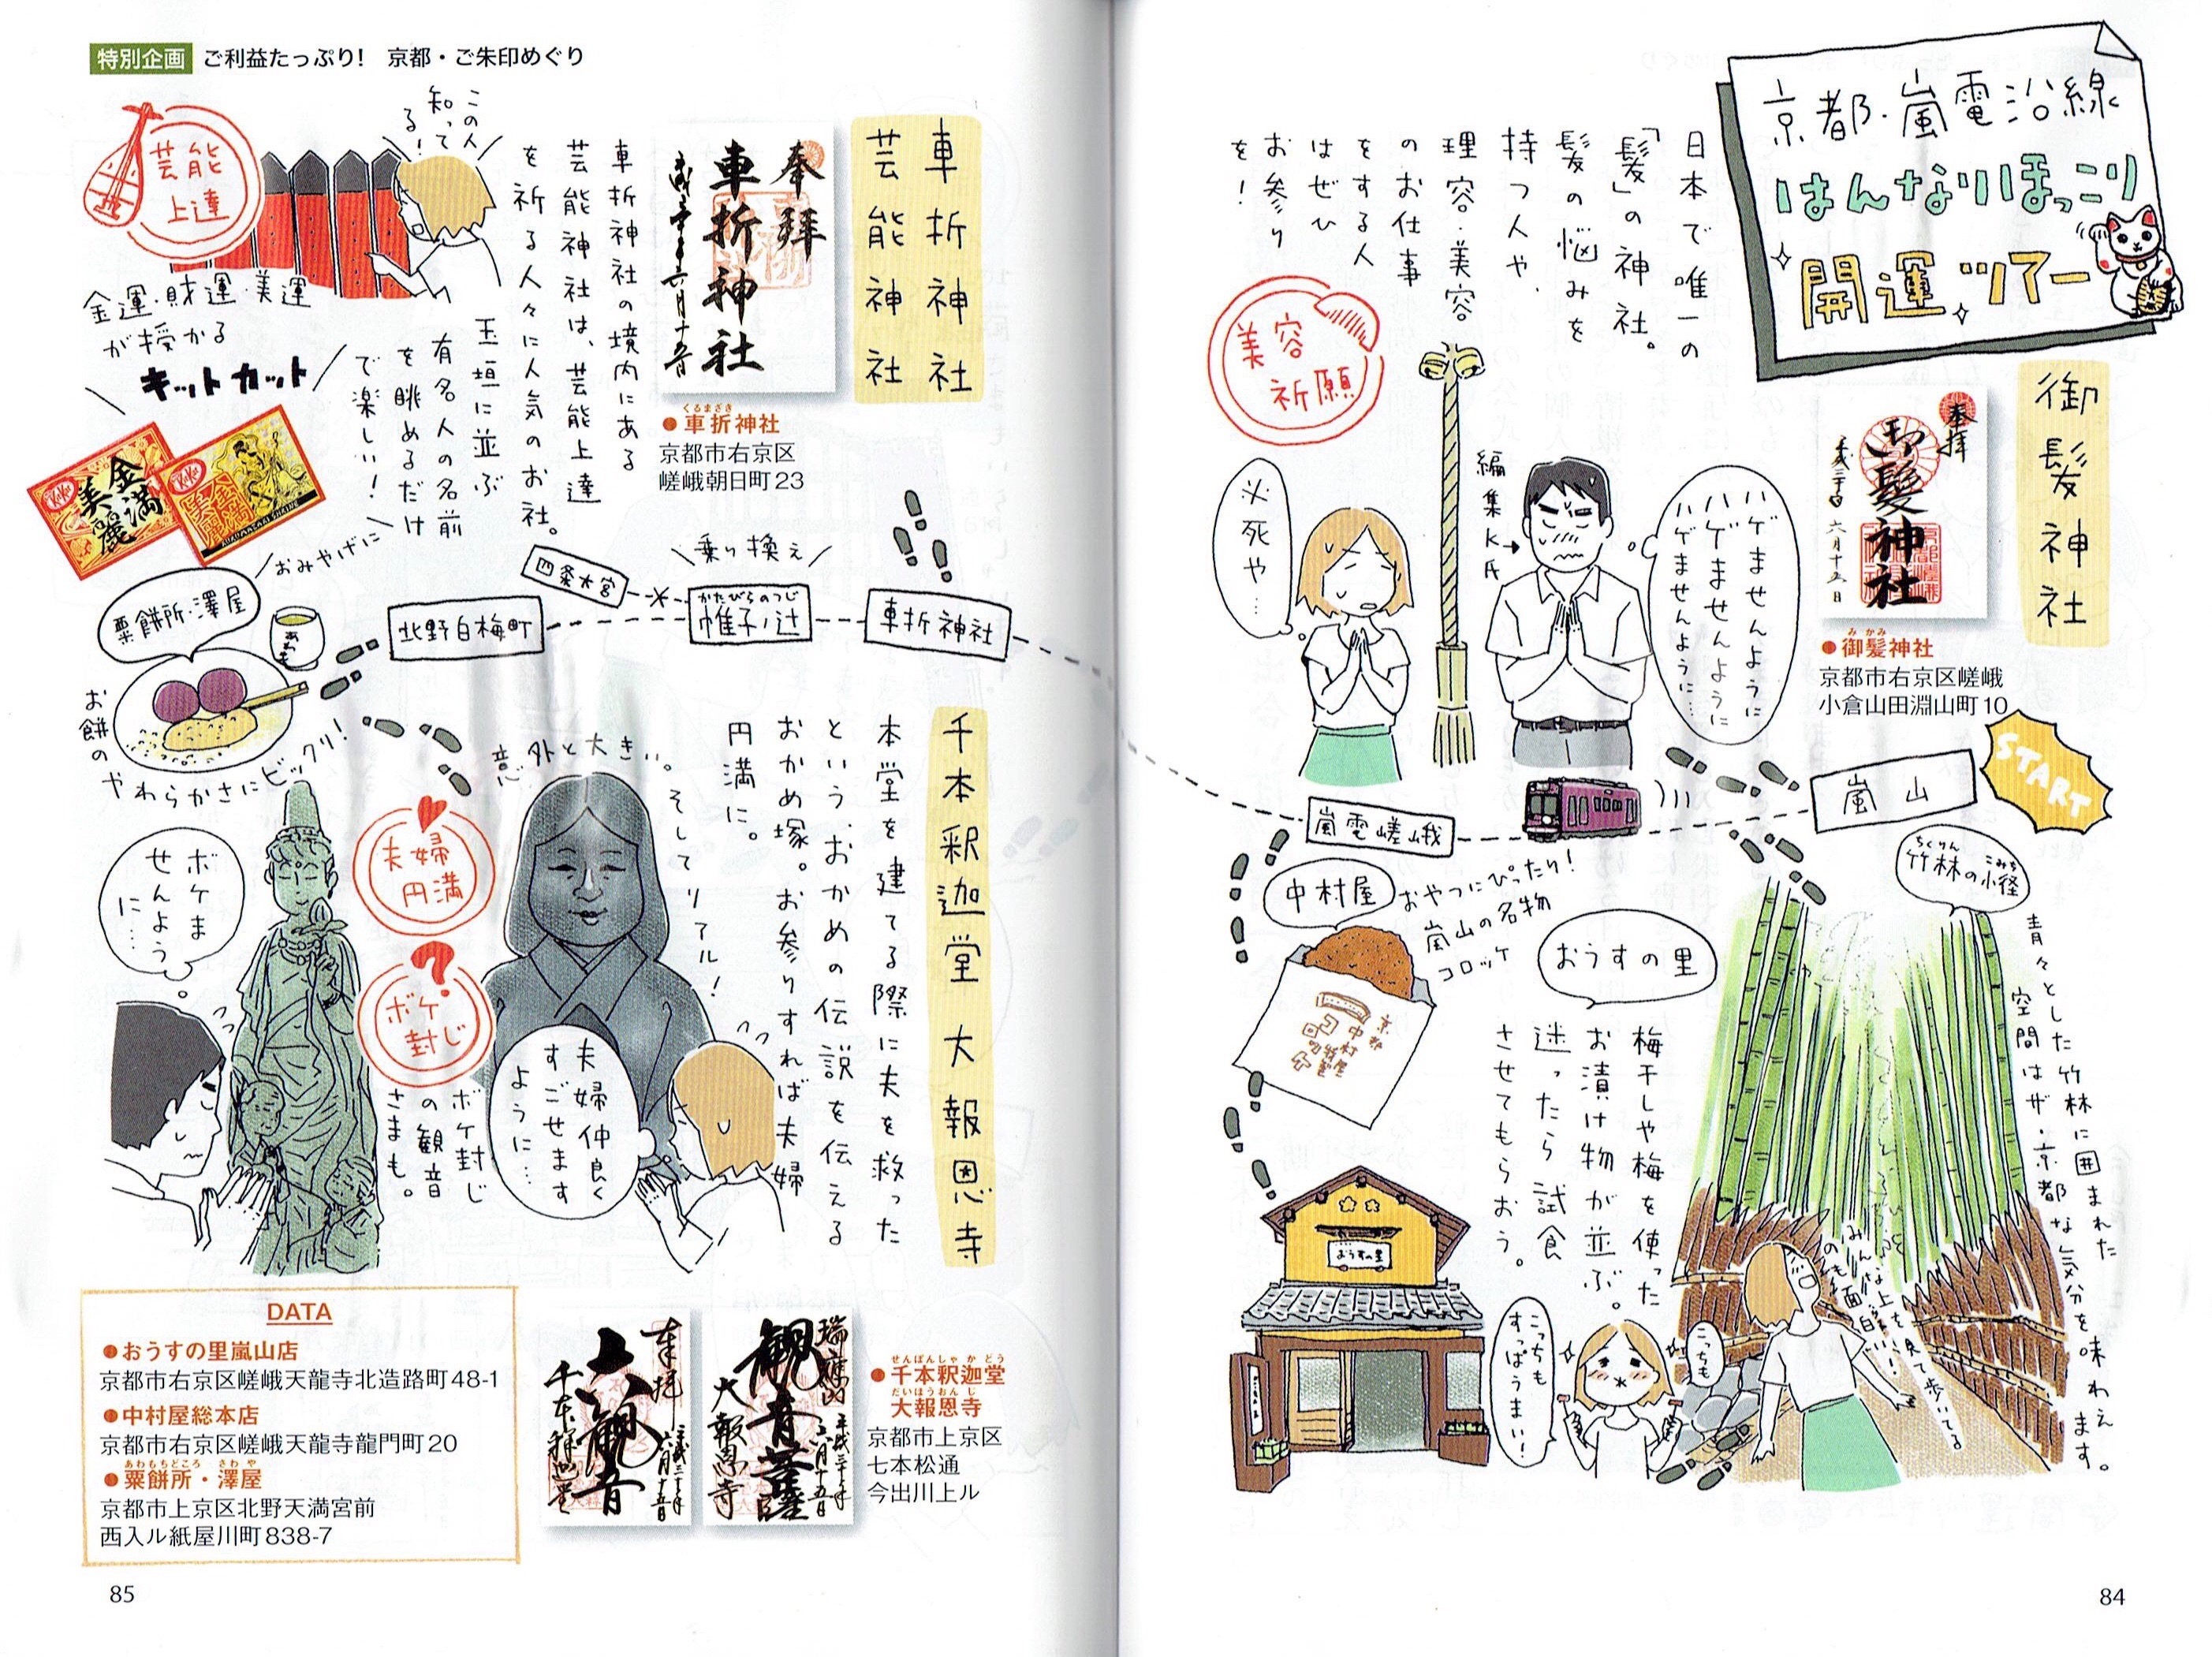 京都・嵐電沿線
はんなりほっこり
開運ツアー
御髪神社
日本で唯一の
「髪」の神社。
髪の悩みを
持つ人や、
理容・美容
のお仕事
をする人
はぜひ
お参り
を！
美容
祈願
奉拝
御髪神社
六月十五日
みかみ
●御髪神社
京都市右京区嵯峨
小倉山田淵山町10
ハゲませんように
ハゲませんように
ハゲませんように…
編集K氏→
必死や…
START
嵐山
嵐電嵯峨
ちくりん こみち
竹林の小径
青々とした竹林に囲まれた
空間はザ・京都な気分を味わえます。
みんな上を見て歩いてる
のも面白い！
中村屋
おやつにぴったり！
嵐山の名物
コロッケ
京都
中村屋
コロッケ
おうすの里
梅干しや梅を使った
お漬け物が並ぶ。
迷ったら試食
させてもらおう。
おうすの里
こっちも
こっちも
すっぱうまい！
84
特別企画 ご利益たっぷり！ 京都・ご朱印めぐり
車折神社
芸能神社
奉拝
車折神社
六月十五日
くるまざき
●車折神社
京都市右京区
嵯峨朝日町23
車折神社の境内にある
芸能神社は、芸能上達
を祈る人々に人気のお社。
玉垣に並ぶ
有名人の名前
を眺めるだけ
で楽しい！
この人
知って
る！
芸能
上達
金運・財運・美運
が授かる
キットカット
金満
美麗
KitKat
金満
美麗
KitKat
KURUMAZAKI SHRINE
おみやげに
車折神社
乗り換え
かたびらのつじ
帷子ノ辻
四条大宮
北野白梅町
粟餅所・澤屋
あわもち
お餅の
やわらかさにビックリ！
千本釈迦堂 大報恩寺
本堂を建てる際に夫を救った
という、おかめの伝説を伝える
おかめ塚。お参りすれば夫婦
円満に。
意外と大きい。そしてリアル！
夫婦
円満
ボケ
封じ
夫婦仲良く
すごせます
ように…
ボケ封じ
の観音
さまも。
ボケま
せんよう
に…
瑞応山
観音菩薩
大報恩寺
奉拝
六観音
千本釈迦堂
せんぼんしゃかどう
●千本釈迦堂
だいほうおんじ
大報恩寺
京都市上京区
七本松通
今出川上ル
DATA
●おうすの里嵐山店
京都市右京区嵯峨天龍寺北造路町48-1
●中村屋総本店
京都市右京区嵯峨天龍寺龍門町20
あわもちどころ さわや
●粟餅所・澤屋
京都市上京区北野天満宮前
西入ル紙屋川町838-7
85